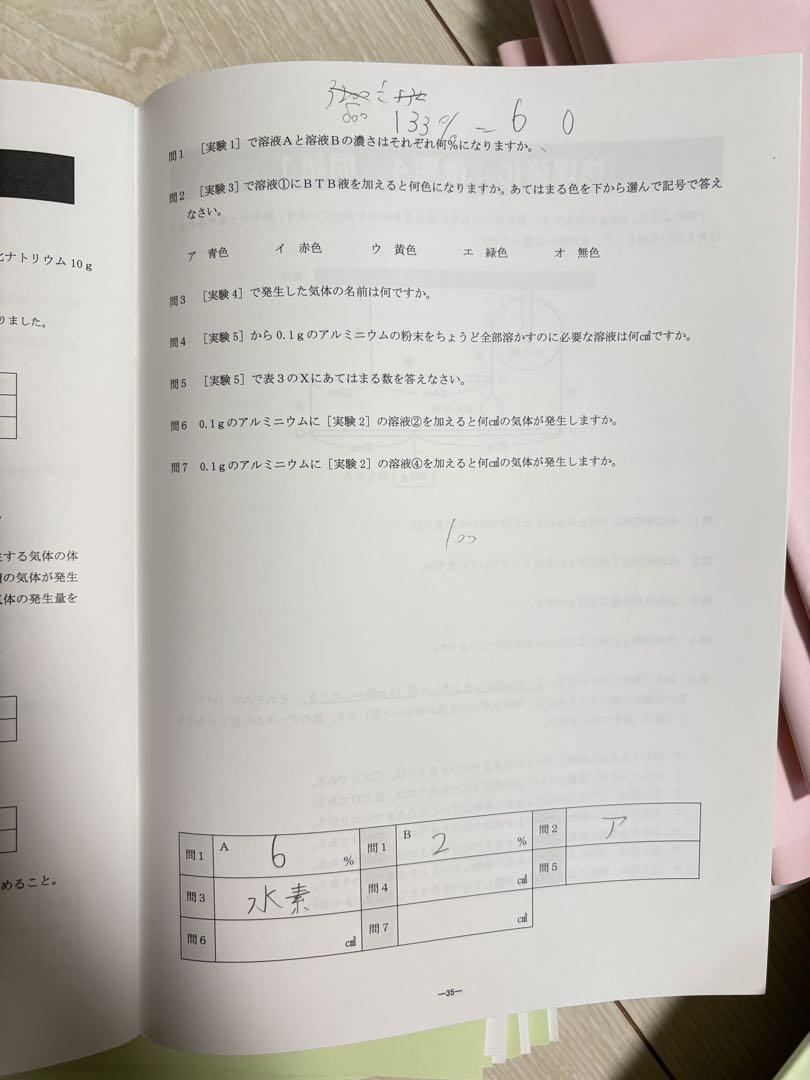 133% = 60
問1 ［実験1］で溶液Aと溶液Bの濃さはそれぞれ何%になりますか。
問2 ［実験3］で溶液①にBTB液を加えると何色になりますか。あてはまる色を下から選んで記号で答え
なさい。
ア 青色 イ 赤色 ウ 黄色 エ 緑色 オ 無色
問3 ［実験4］で発生した気体の名前は何ですか。
問4 ［実験5］から0.1gのアルミニウムの粉末をちょうど全部溶かすのに必要な溶液は何㎤ですか。
問5 ［実験5］で表3のXにあてはまる数を答えなさい。
問6 0.1gのアルミニウムに［実験2］の溶液②を加えると何㎤の気体が発生しますか。
問7 0.1gのアルミニウムに［実験2］の溶液④を加えると何㎤の気体が発生しますか。
100
ナトリウム10g
りました。
する気体の体
の気体が発生
気体の発生量を
めること。
問1 A 6 % 問1 B 2 % 問2 ア
問3 水素 問4 ㎤ 問5
問6 ㎤ 問7 ㎤
—35—